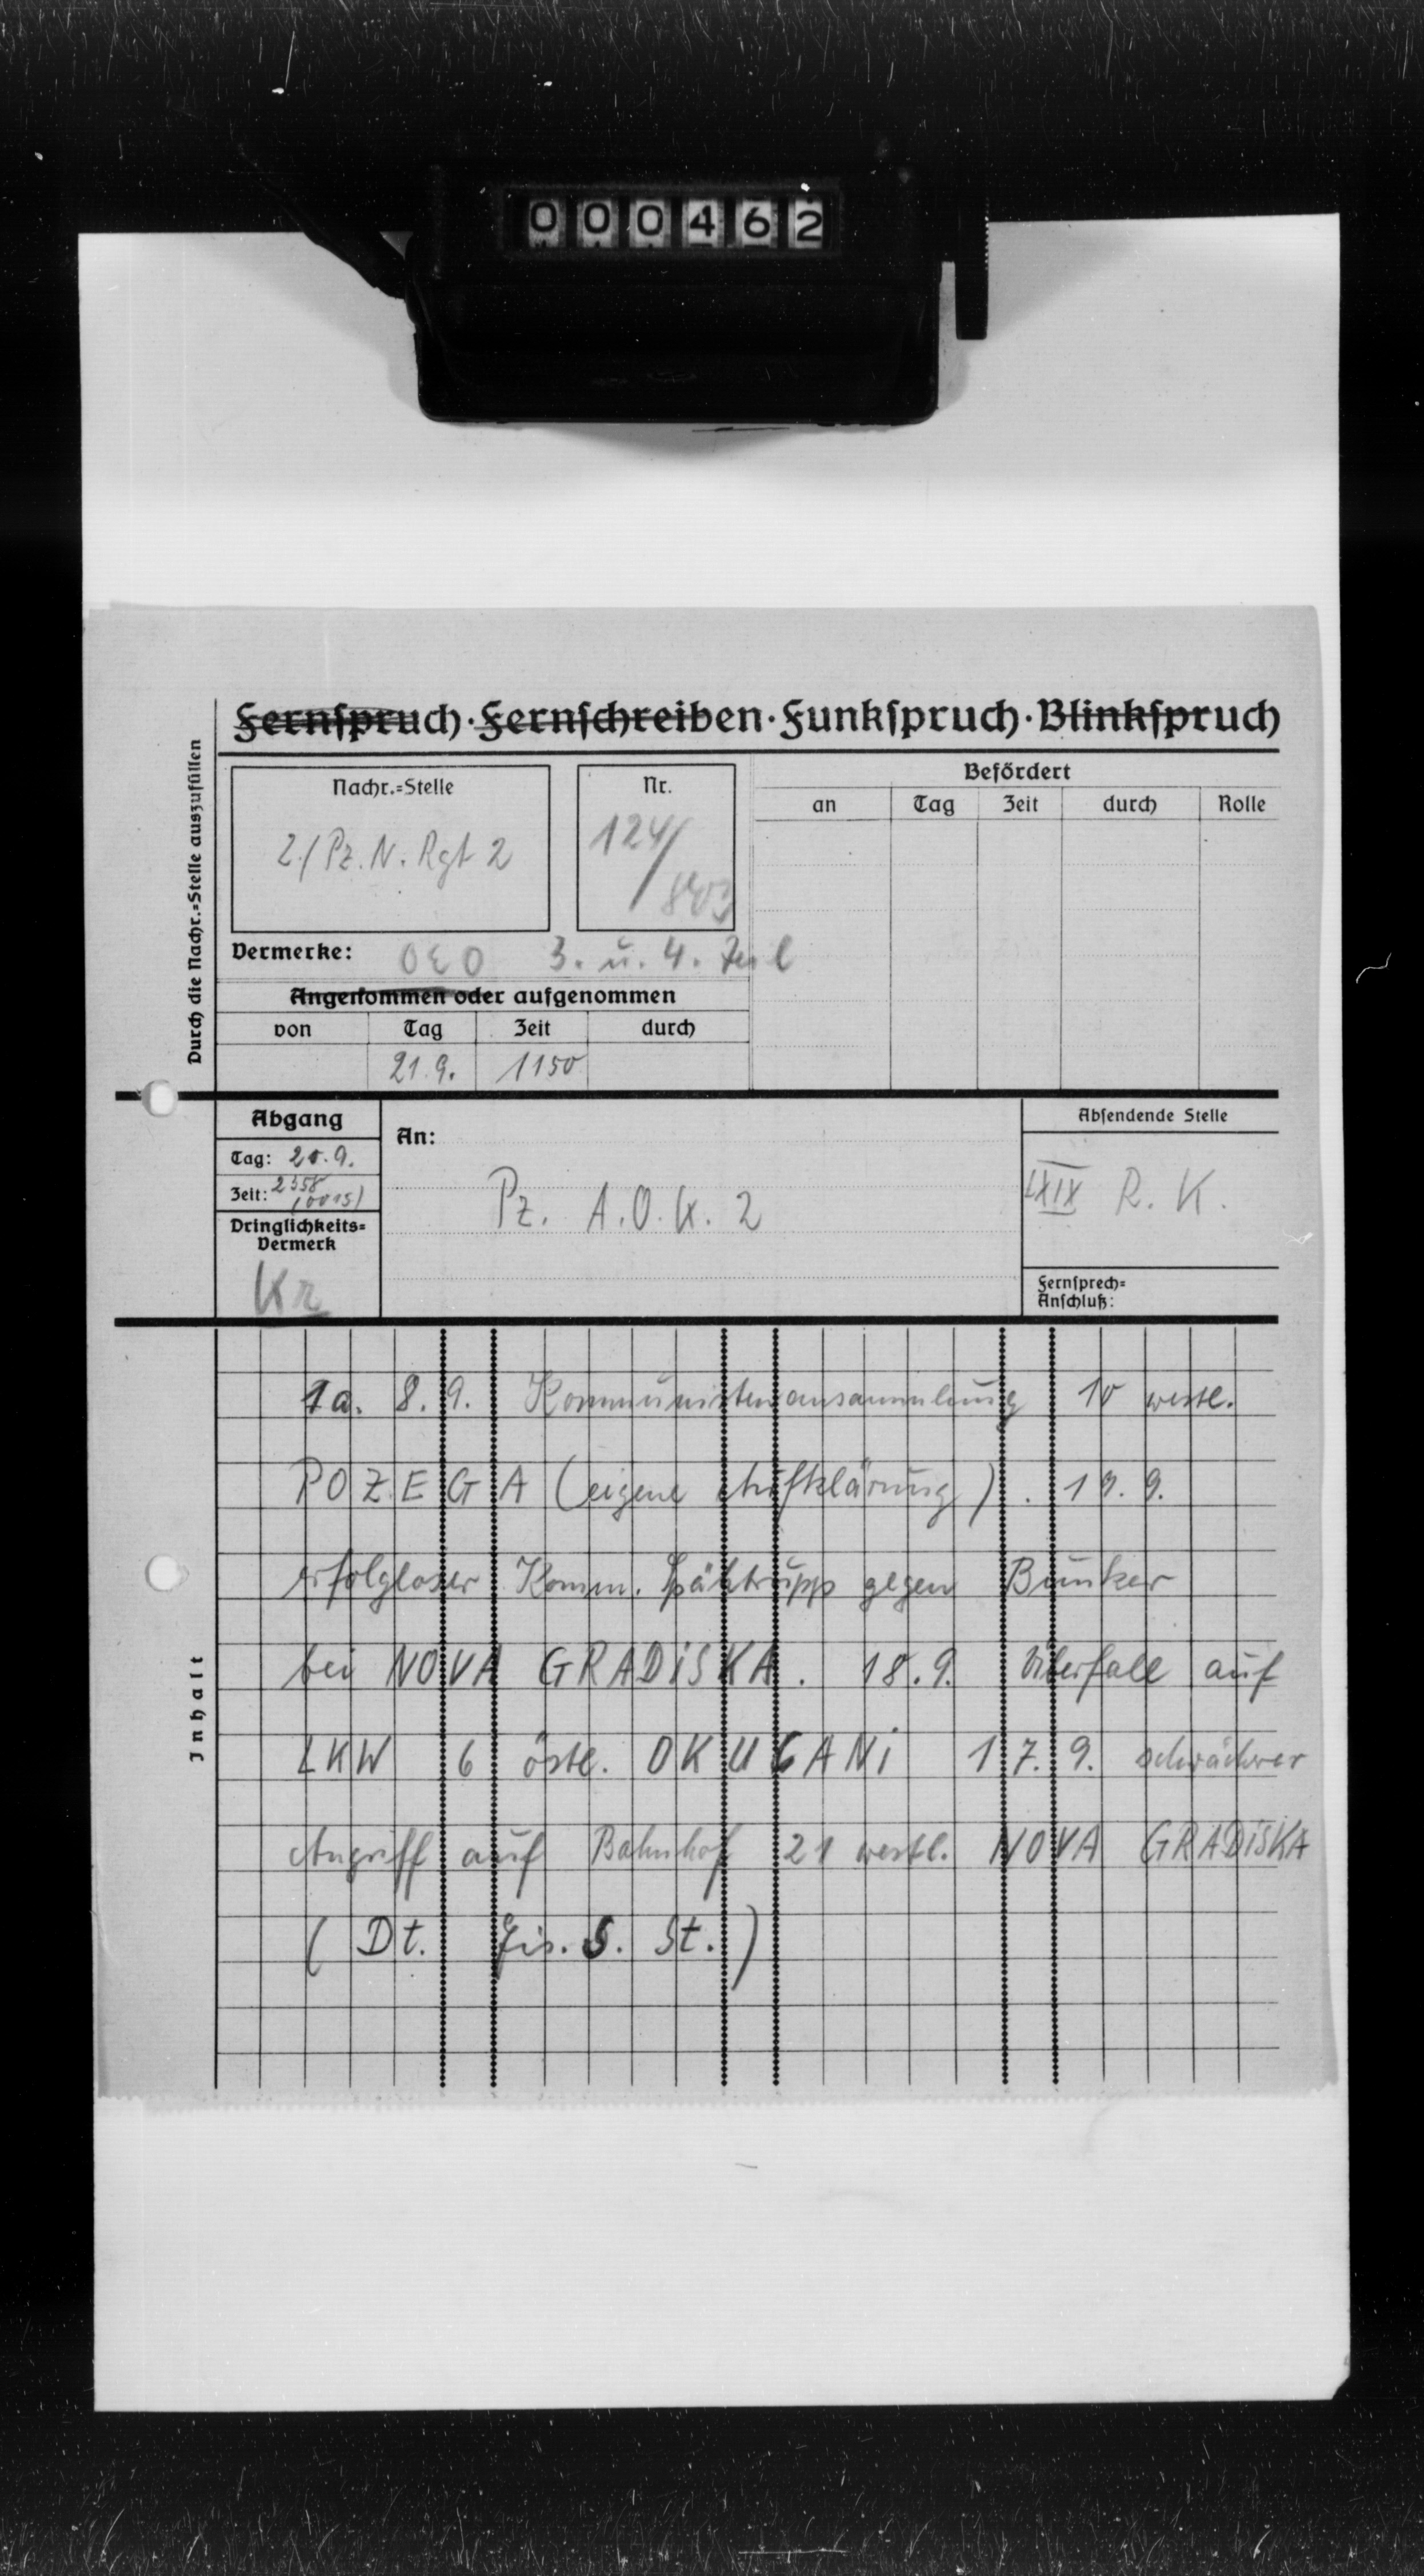 000462
Fernspruch · Fernschreiben · Funkspruch · Blinkspruch
Durch die Nachr.=Stelle auszufüllen
Nachr.=Stelle
2./Pz.N.Rgt 2
Nr.
124/
Befördert
an Tag Zeit durch Rolle
Vermerke: 3. u. 4. Teil
Angekommen oder aufgenommen
von Tag Zeit durch
21.9. 1150
Abgang
Tag: 20.9.
Zeit: 2358
(0015)
Dringlichkeits=
Vermerk
Kr
An:
Pz. A.O.K. 2
Absendende Stelle
LXIX R. K.
Fernsprech=
Anschluß:
Inhalt
1a. 8.9. Kommunistenansammlung 10 westl.
POZEGA (eigene Aufklärung). 19.9.
erfolgloser Komm. Spähtrupp gegen Bunker
bei NOVA GRADISKA. 18.9. Überfall auf
LKW 6 östl. OKUCANI 17.9. schwächer
Angriff auf Bahnhof 21 westl. NOVA GRADISKA
( Dt. S. St. )